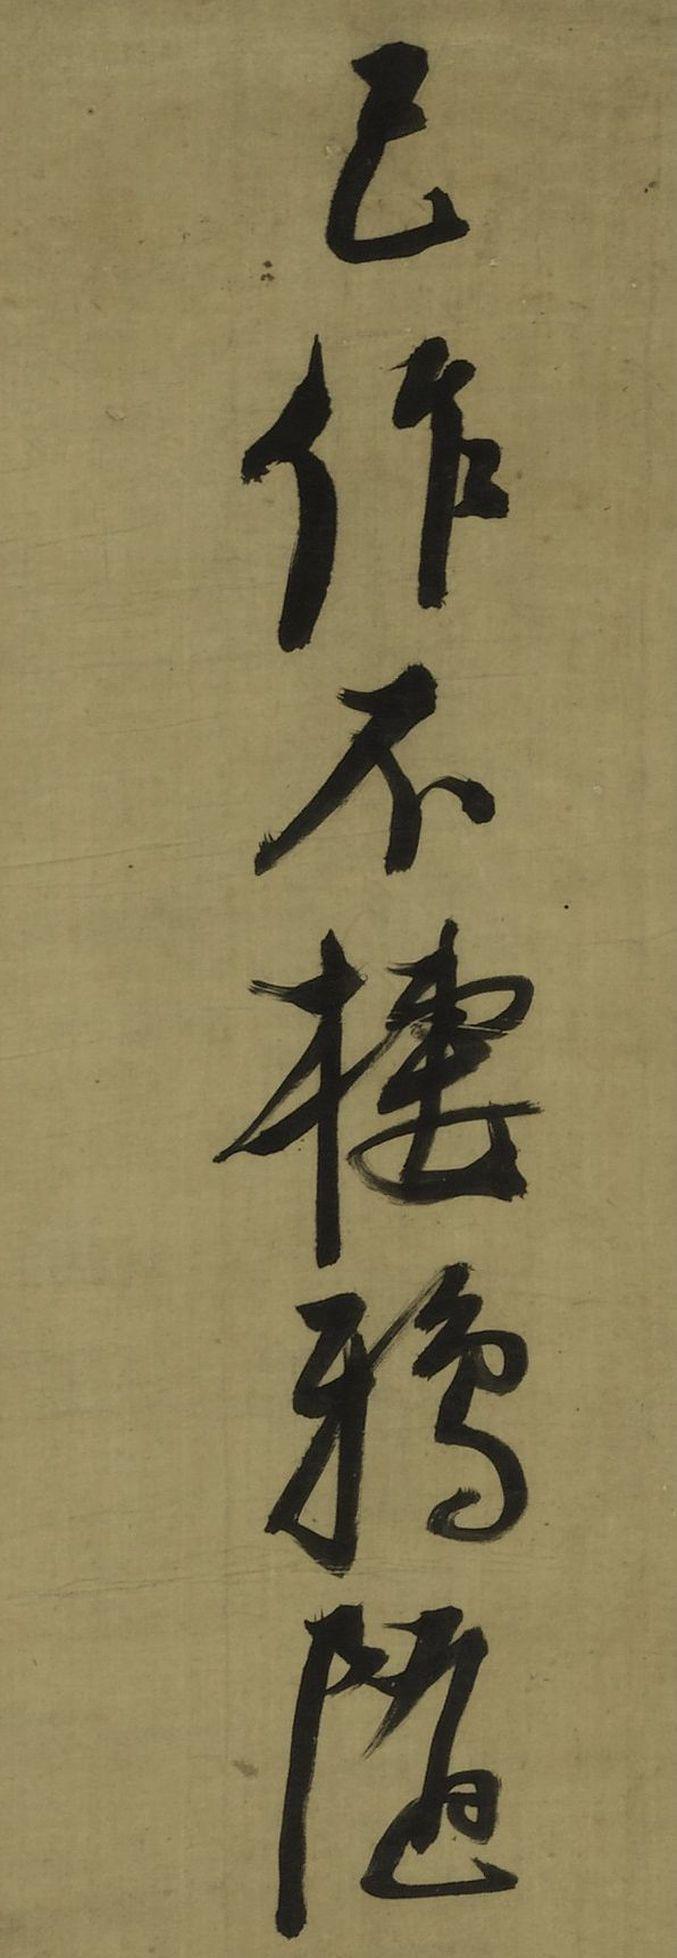 已作不棲鴉隨